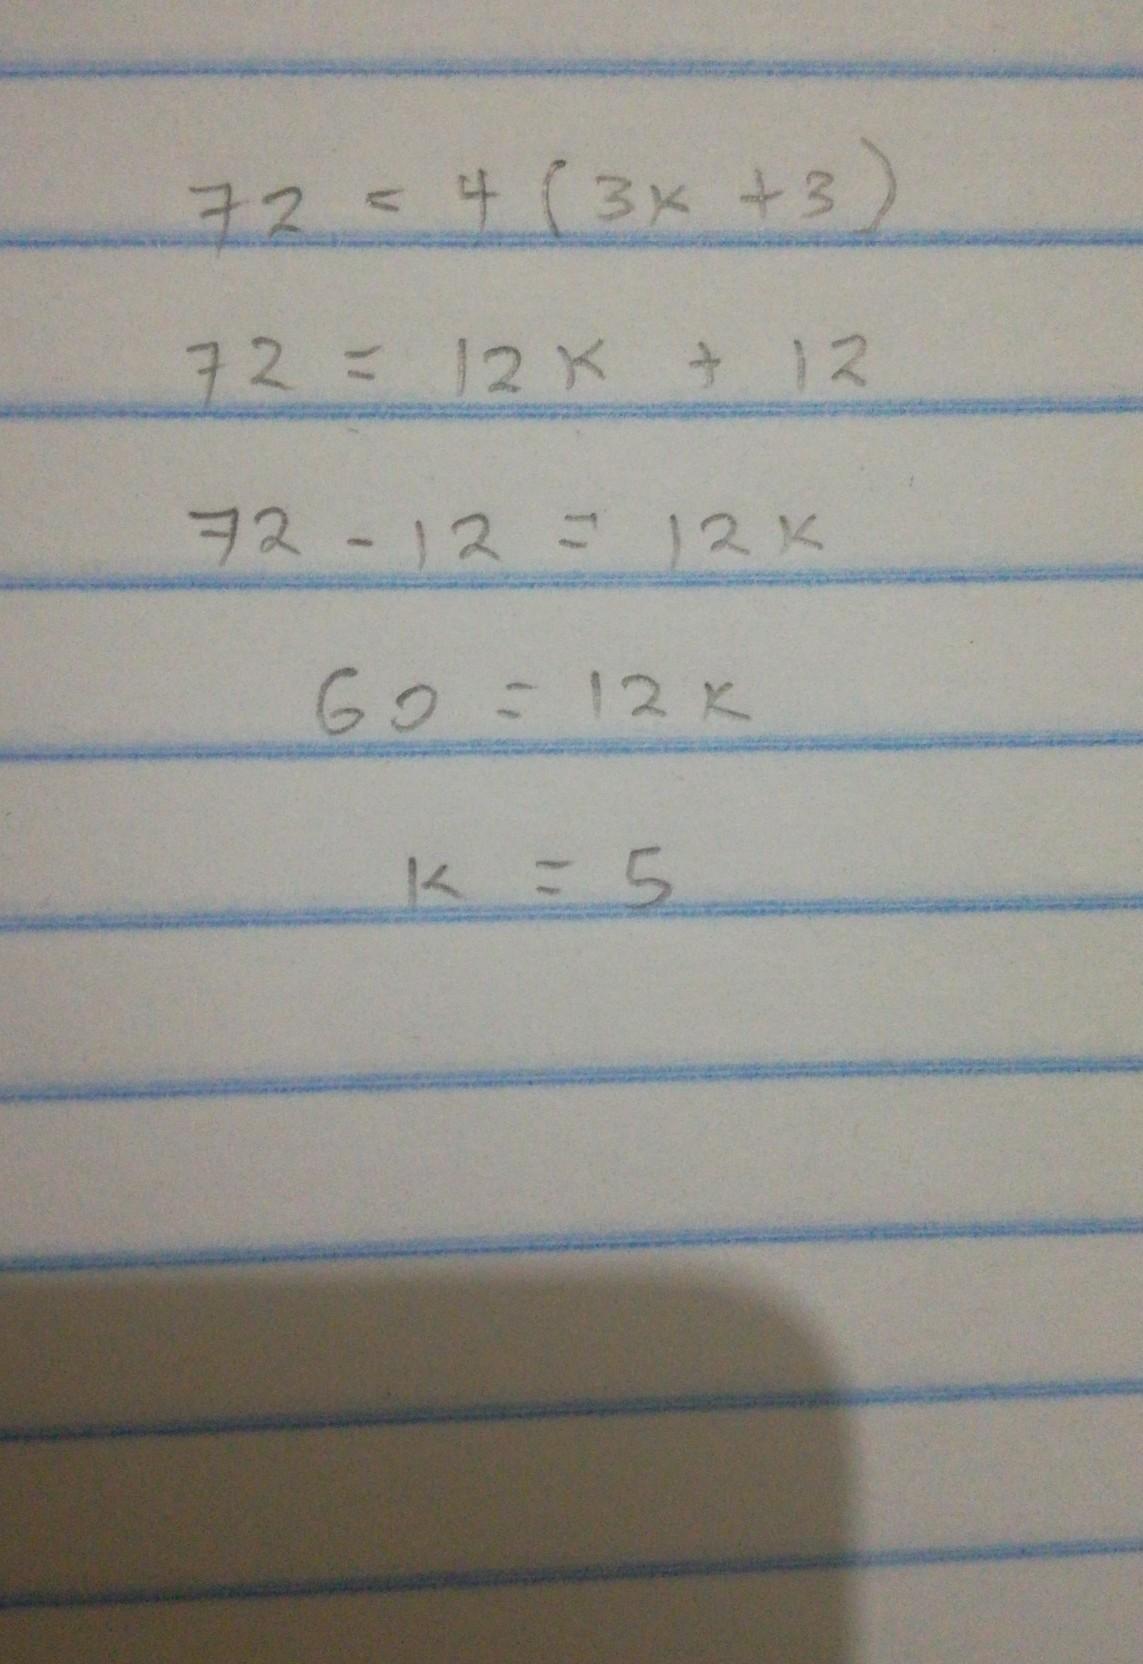 72 = 4 ( 3k + 3 )
72 = 12k + 12
72 - 12 = 12k
60 = 12k
k = 5